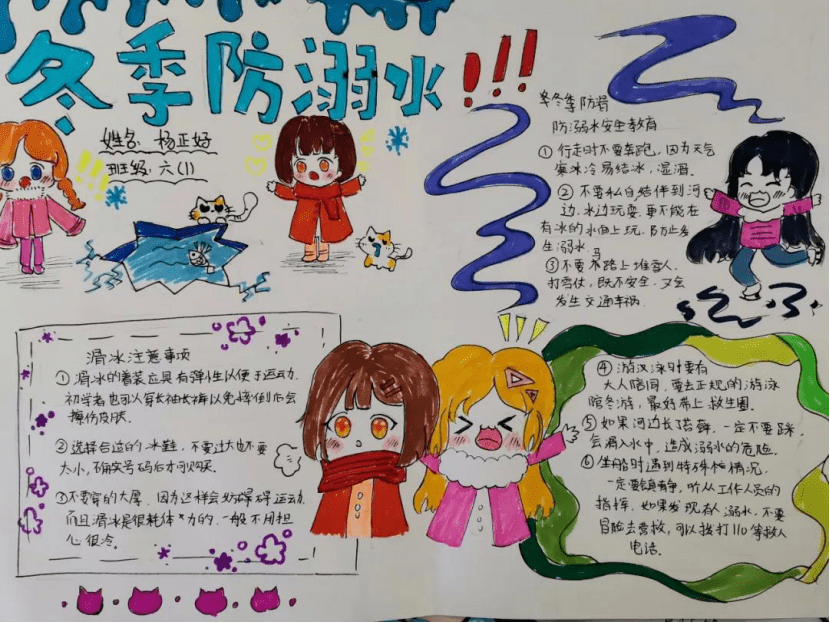 冬季防溺水!!!
姓名: 杨正好
班级: 六(1)
冬季防溺
防溺水安全教育
① 行走时不要奔跑,因为天气
寒冰冷易结冰,湿滑.
② 不要私自结伴到河
边.水边玩耍.更不能在
有冰的水面上玩.防止发
生溺水
③ 不要马路上堆雪人.
打雪仗,既不安全.又会
发生交通事祸.
滑冰注意事项
① 滑冰的着装应具有弹性以便于运动.
初学者也可以穿长袖长裤以免摔倒后会
擦伤皮肤.
② 选择合适的冰鞋,不要过大也不要
太小,确实号码后才可购买.
③ 不要穿的太厚,因为这样会妨碍碍运动
而且滑冰是很耗体力的.一般不用担
心很冷.
④ 游泳时要有
大人陪同,要去正规的游泳
馆冬游,最好带上救生圈.
⑤ 如果河边长了苔藓,一定不要踩
会滑入水中,造成溺水的危险.
⑥ 坐船时遇到特殊情况.
一定要镇静,听从工作人员的
指挥.如果发现有人溺水,不要
冒险去营救,可以拨打110等救人
电话.